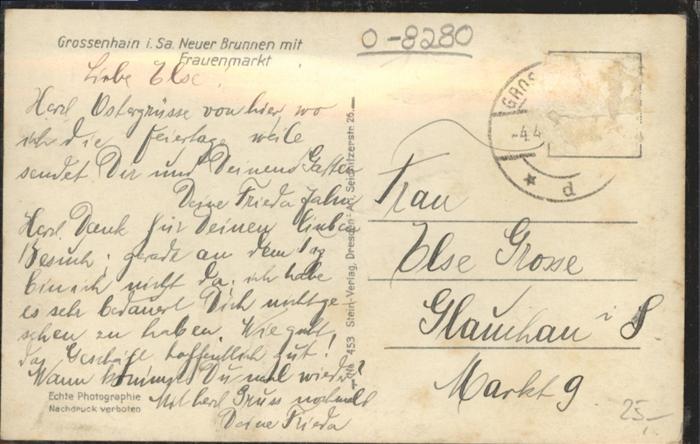 Grossenhain i. Sa. Neuer Brunnen mit
Frauenmarkt
O-8280
Liebe Else!
Herzl Ostergrüsse von hier wo
ich die Feiertage weile
sendet Dir und Deinem Gatten
Deine Frieda
Herzl Dank für Deinen lieben
Besuch, gerade an dem Tag
bin ich nicht da, ich habe
es sehr bedauert Dich nicht ge-
sehen zu haben. Wie geht
das Geschäft hoffentlich gut!
Wann kommst Du mal wieder?
Mit herzl Gruss nochmals
Deine Frieda
Echte Photographie
Nachdruck verboten
No. 453 Stein-Verlag, Dresden-A. 26.
GROS
-4.4
d
Frau
Else Grosse
Glauchau i S
Markt 9
25,-